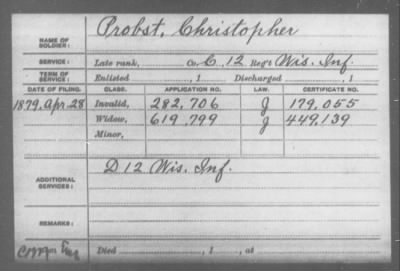 NAME OF SOLDIER: Probst, Christopher
SERVICE: Late rank, Co. C, 12 Reg't Wis. Inf.
TERM OF SERVICE: Enlisted , 1 Discharged , 1
DATE OF FILING. CLASS. APPLICATION NO. LAW. CERTIFICATE NO.
1879, Apr. 28 Invalid, 282,706 J 179,055
Widow, 619,799 J 449,139
Minor,
D 12 Wis. Inf.
ADDITIONAL SERVICES:
REMARKS:
Died , 1 , at